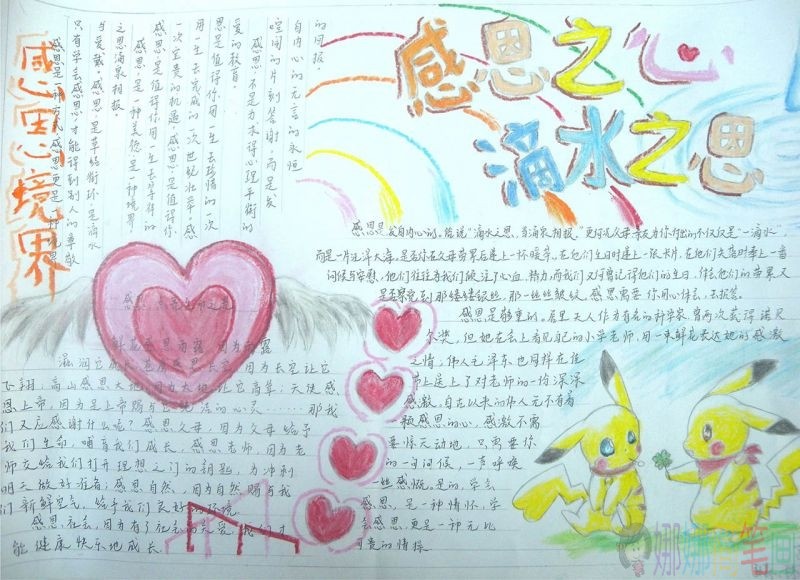 感恩之心
滴水之恩
感恩心境界
的回报。
自内心的无言的永恒
空间的片刻答谢,而是发
感恩不是为求得心理平衡的
爱的教育。
恩是值得你用一生去珍惜的一次
用一生去完成的一次世纪壮举,感
一次宝贵的机遇,感恩是值得你
感恩是值得你用一生去等待的
感恩,是一种美德是一种境界
之恩涌泉相报。
当爱戴。感恩,是草结衔环是滴水
只有学会感恩,才能得到别人的尊敬
感恩是一种方式,感恩更是一种情
感恩是发自内心的。俗说“滴水之恩,当涌泉相报。”更何况父母亲友为你付出的不仅仅是“一滴水”,
而是一片汪洋大海。是否你在父母劳累后递上一杯暖茶。在他们生日时递上一张卡片,在他们失落时奉上一番
问候与安慰,他们往往为我们倾注了心血、精力,而我们又何曾记得他们的生日,体会他们的劳累,又
是否察觉到那缕缕银丝,那一丝丝皱纹。感恩需要你用心体会,去报答。
感恩是敬重的。居里夫人作为有名的科学家,曾两次获得诺贝
尔奖,但她在会上看见自己的小学老师,用一束鲜花表达她的感激
之情;伟人毛泽东也同样在佳
节上送上了对老师的一份深深
感激。自古以来的伟人无不有着
颗感恩的心,感激不需
要惊天动地,只需要你
的一句问候,一声呼唤
一丝感慨。是的,学会
感恩,是一种情怀,学
会感恩,更是一种无比
可贵的情操
鲜花感恩雨露,因为雨露
滋润它成长;苍鹰感恩长空,因为长空让它
飞翔;高山感恩大地,因为大地让它高耸;天使感
恩上帝,因为是上帝赐与它纯洁的心灵……那我
们又应感谢什么呢?感恩父母,因为父母给予
我们生命,哺育我们成长,感恩老师,因为老
师交给我们打开理想之门的钥匙,为冲刺
明天做好准备;感恩自然,因为自然赐与我
们新鲜空气,给予我们良好的环境
感恩社会,因为有了社会的关爱,我们才
能健康快乐地成长。
娜娜
笔画